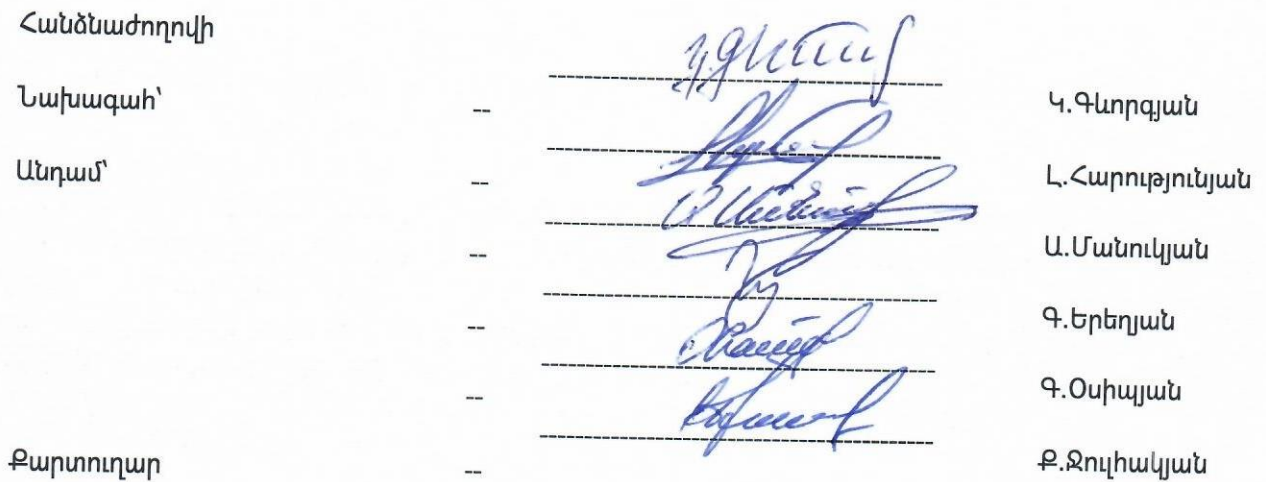 Հանձնաժողովի
Նախագահ՝ -- Կ.Գևորգյան
Անդամ՝ -- Լ.Հարությունյան
-- Ա.Մանուկյան
-- Գ.Երեղյան
-- Գ.Օսիպյան
Քարտուղար -- Ք.Ջուլհակյան